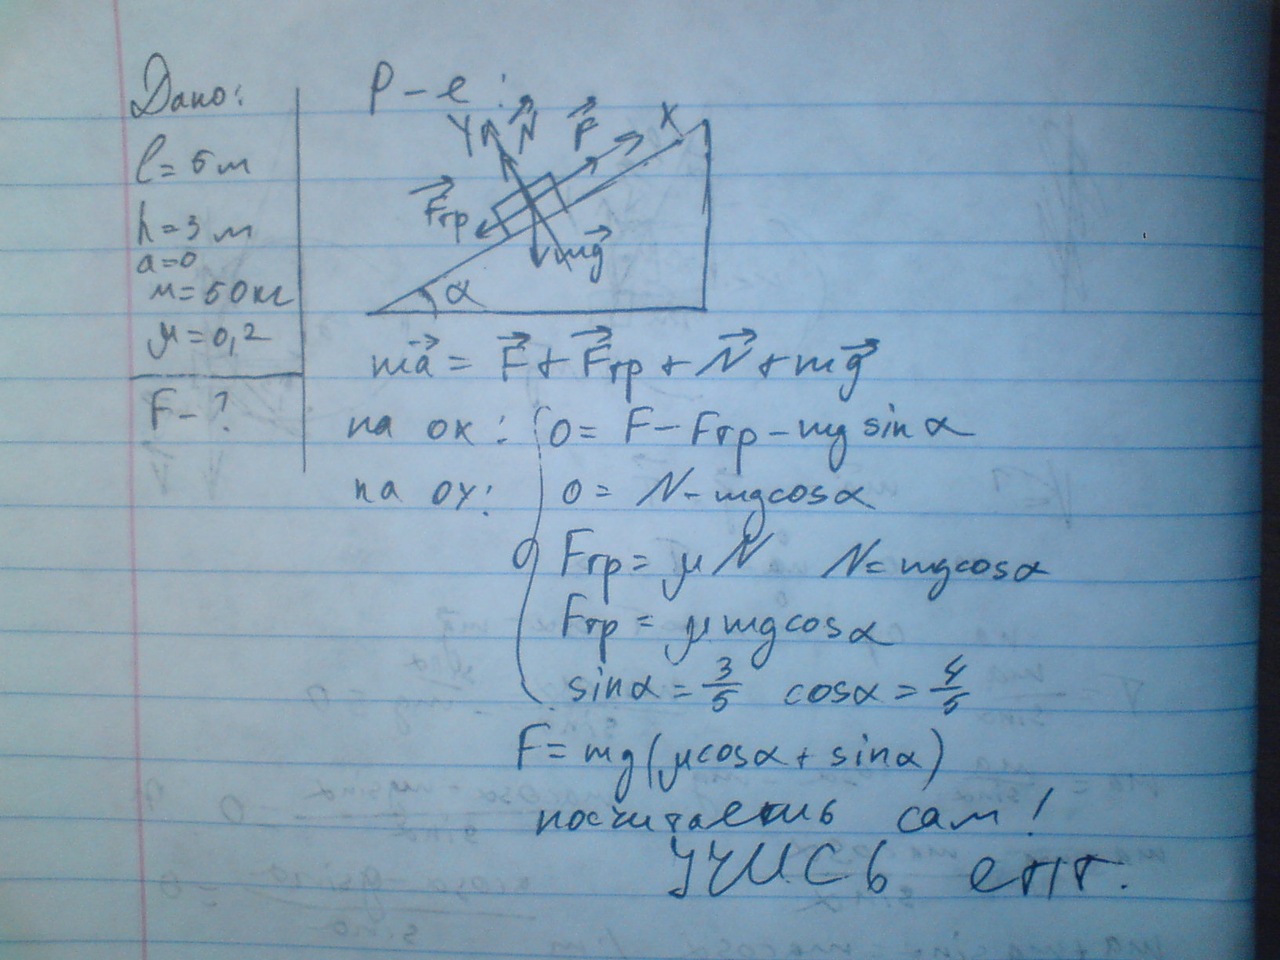 Дано:
l = 5 м
h = 3 м
a = 0
м = 50 кг
μ = 0,2
F - ?
Р - е :
Y N F X
Fтр
mg
α
ma = F + Fтр + N + mg
на ox : 0 = F - Fтр - mg sin α
на oy : 0 = N - mg cos α
Fтр = μ N N = mg cos α
Fтр = μ mg cos α
sin α = 3/5 cos α = 4/5
F = mg (μ cos α + sin α)
посчитаешь сам !
УЧИСЬ епт.